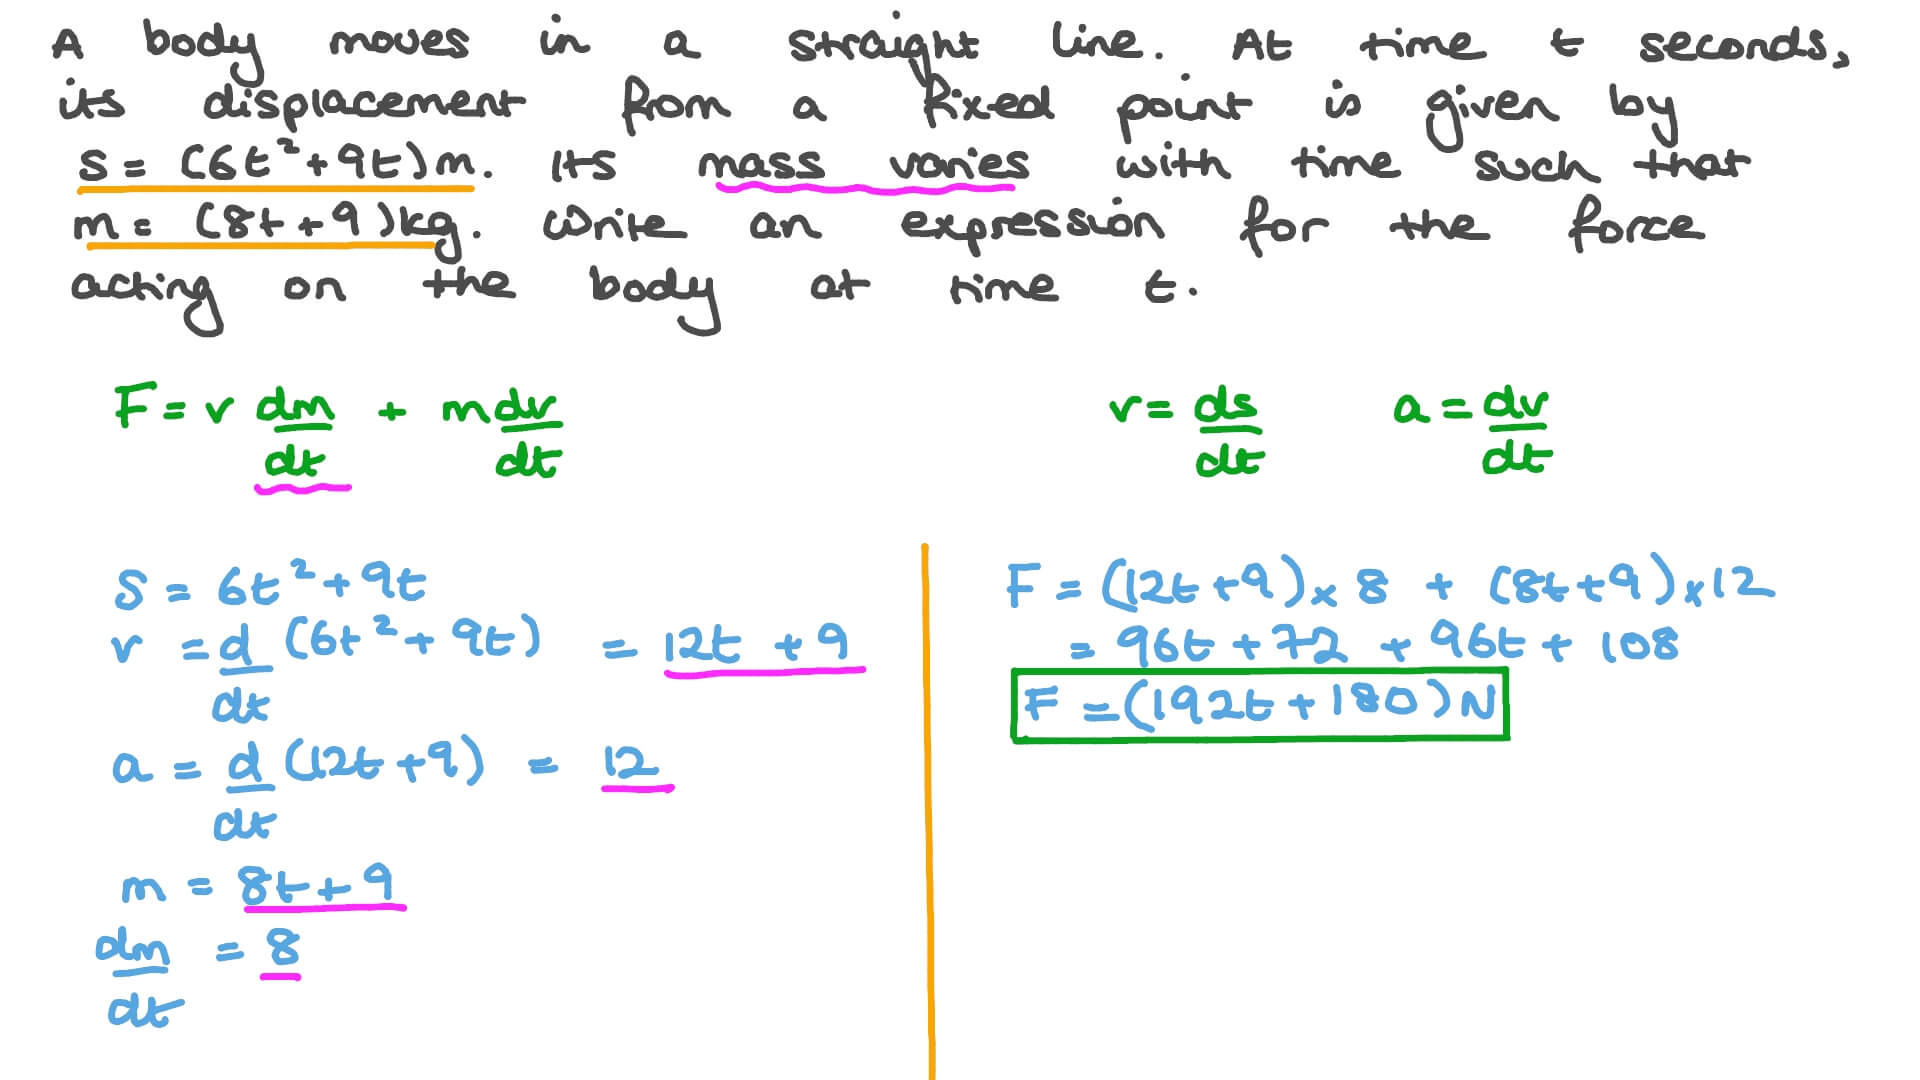 A body moves in a straight line. At time t seconds,
its displacement from a fixed point is given by
s = (6t²+9t)m. Its mass varies with time such that
m = (8t+9)kg. Write an expression for the force
acting on the body at time t.
F = v dm/dt + m dv/dt
v = ds/dt a = dv/dt
s = 6t²+9t
v = d/dt (6t²+9t) = 12t+9
a = d/dt (12t+9) = 12
m = 8t+9
dm/dt = 8
F = (12t+9)×8 + (8t+9)×12
= 96t+72 + 96t+108
F = (192t+180)N